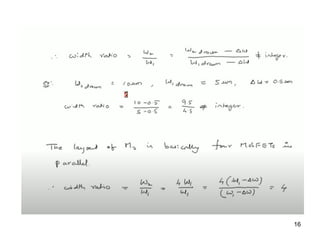 ∴ width ratio = W₂/W₁ = (W₂ drawn − ΔW)/(W₁ drawn − ΔW) ≠ integer.
W₂drawn = 10um, W₁drawn = 5um, ΔW = 0.5um
width ratio = (10-0.5)/(5-0.5) = 9.5/4.5 ≠ integer.
The layout of M₂ is basically four MOSFETs in
parallel.
∴ width ratio = W₂/W₁ = 4W₁/W₁ = 4(W₁-ΔW)/(W₁-ΔW) = 4
16